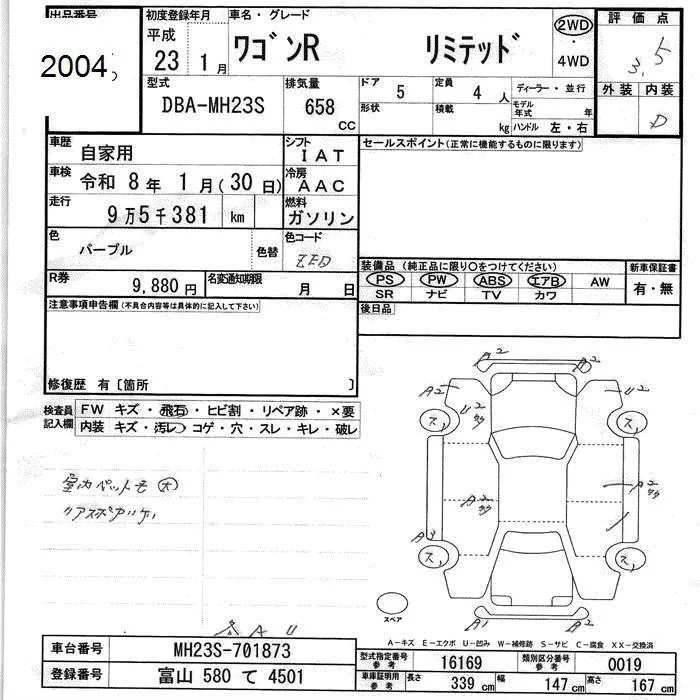 出品番号 初度登録年月 車名・グレード 2WD ・ 4WD 評価点
2004
平成 23 1月 ワゴンR リミテッド 3.5
型式 DBA-MH23S 排気量 658 CC
ドア 5 定員 4 人 ディーラー・並行
形状 積載 kg モデル年式 年
ハンドル 左・右
外装 内装 D
車歴 自家用 シフト IAT
車検 令和 8年 1月(30日) 冷房 AAC
走行 9万5千381 km 燃料 ガソリン
色 パープル 色替 色コード
R券 9,880円 名変通知期限 月 日
セールスポイント(正常に機能するものに限ります)
装備品 (純正品に限り○をつけてください) 新車保証書
PS PW ABS エアB AW 有・無
SR ナビ TV カワ
後日品
注意事項申告欄(不具合内容等は具体的に記入して下さい)
修復歴 有〔箇所 〕
検査員記入欄
FW キズ・飛石・ヒビ割・リペア跡・×要
内装 キズ・汚レ・コゲ・穴・スレ・キレ・破レ
A2 A2
A2 U2
U2
ス ス
A2 A2
A3
ス ス
A1 A2
スペア
A-キズ E-エクボ U-凹み W-補修跡 S-サビ C-腐食 XX-交換済
車台番号 MH23S-701873
登録番号 富山 580 て 4501
型式指定番号 参考 16169 類別区分番号 参考 0019
車庫証明用 参考 長さ 339 cm 幅 147 cm 高さ 167 cm